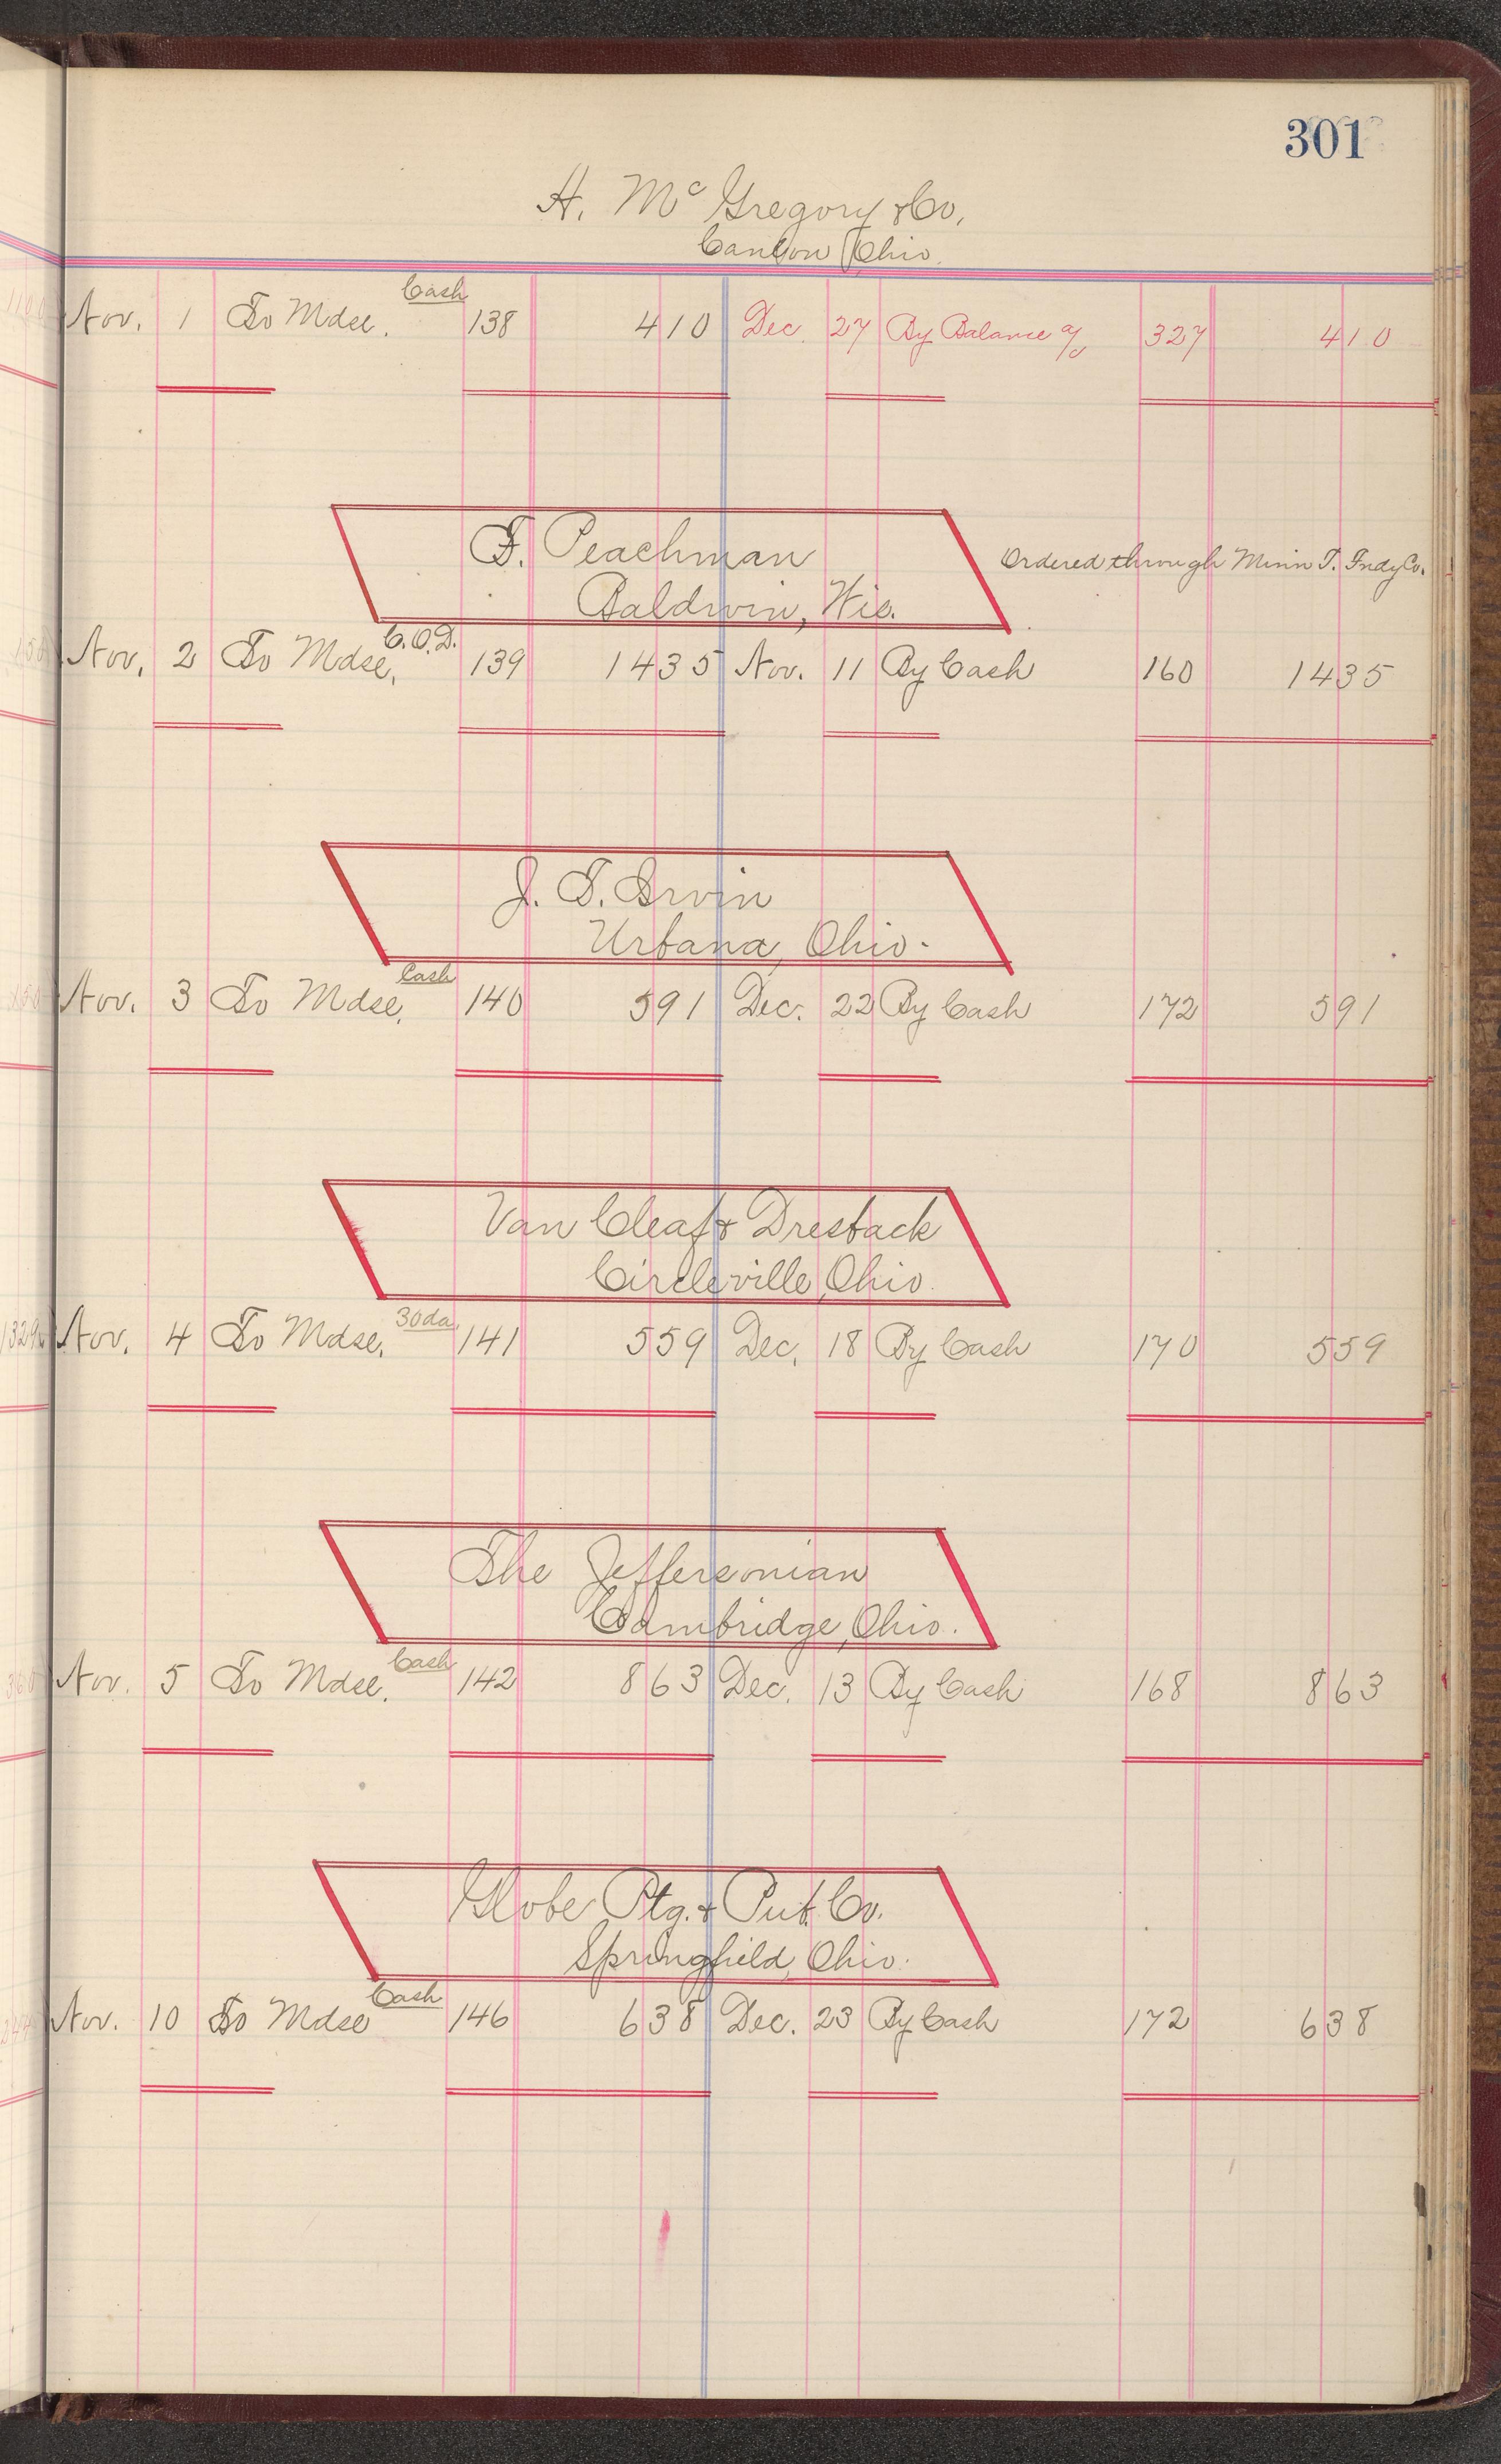 301
H. Mc Gregory & Co,
Canton Ohio.
Cash
Nov. 1 To Mdse. 138 410 Dec. 27 By Balance a/c 327 410
F. Peachman Ordered through Minn T. Fndy Co.
Baldwin, Wis.
C.O.D.
Nov. 2 To Mdse, 139 1435 Nov. 11 By Cash 160 1435
J. T. Irvin
Urbana, Ohio.
Cash
Nov. 3 To Mdse, 140 591 Dec. 22 By Cash 172 591
Van Cleaf & Dresback
Circleville, Ohio.
30 da.
Nov. 4 To Mdse, 141 559 Dec, 18 By Cash 170 559
The Jeffersonian
Cambridge, Ohio.
Cash
Nov. 5 To Mdse, 142 863 Dec. 13 By Cash 168 863
Globe Ptg. & Pub. Co.
Springfield, Ohio.
Cash
Nov. 10 To Mdse 146 638 Dec. 23 By Cash 172 638